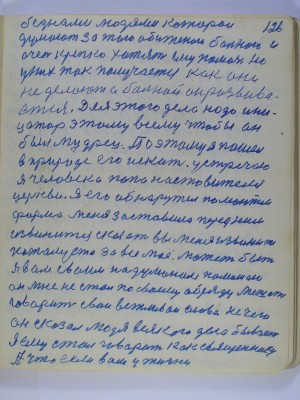 126
беднали людями которои
думоют за того обиженои банного и
очет крепко хотят ему помоч но
у них так получаетца как они
не делоют а балной отразвива-
ется. Для этого дела нодо ини-
цатор этому всему чтобы он
был мудрец. По этому я пошол
в природе его искат. устречаю
я человека попа настоятеля
церкви. Я его обнаружил по
форма. меня заставило предним
извинитца сказат вы меня извинити
пожалуста за все моё. может быть
я вам своими надумоными помешал
он мне не стал по своему обряду
говарит свои вежливои слова нечего
он сказал людя всякого дела бывает
я ему стал говарит как священнику
А что если вам у жизни